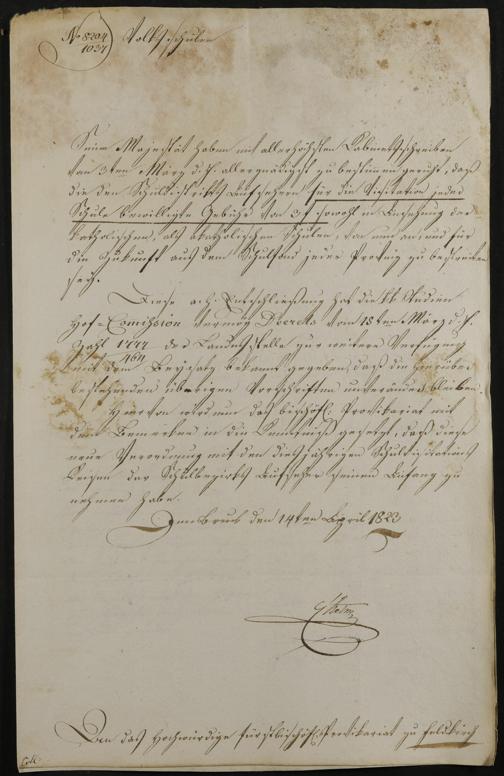 No 8204 Volksschulen
1037
Seine Majestät haben mit allerhöchsten Kabinettsschreiben
vom 3ten März d. J. allergnädigst zu bestimmen geruht, daß
die den Schuldistrikts Aufsehern für die Visitation jeder
Schule bewilligte Gebühr von 3 f sowohl in Beziehung der
katholischen, als akatholischen Schulen, von nun an und für
die Zukunft aus dem Schulfond jeder Provinz zu bestreiten
sey.
Diese ah. Entschließung hat die kk. Studien
Hof-Comission vermög Decrets vom 15ten März d. J.
Zahl 1777/464 der Landesstelle zur weitern Verfügung
mit dem Beysatze bekannt gegeben, daß die hierüber
bestehenden übrigen Vorschriften unverändert bleiben.
Hievon wird nun das bischöfl. Provikariat mit
dem Bemerken in die Kenntniß gesetzt, daß diese
neue Verordnung mit den dießjährigen Schulvisitations
Reisen der Schulbezirks Aufseher seinen Anfang zu
nehmen habe.
Innsbruck den 14ten April 1823
An das Hochwürdige fürstbischöfl. Provikariat zu Feldkirch